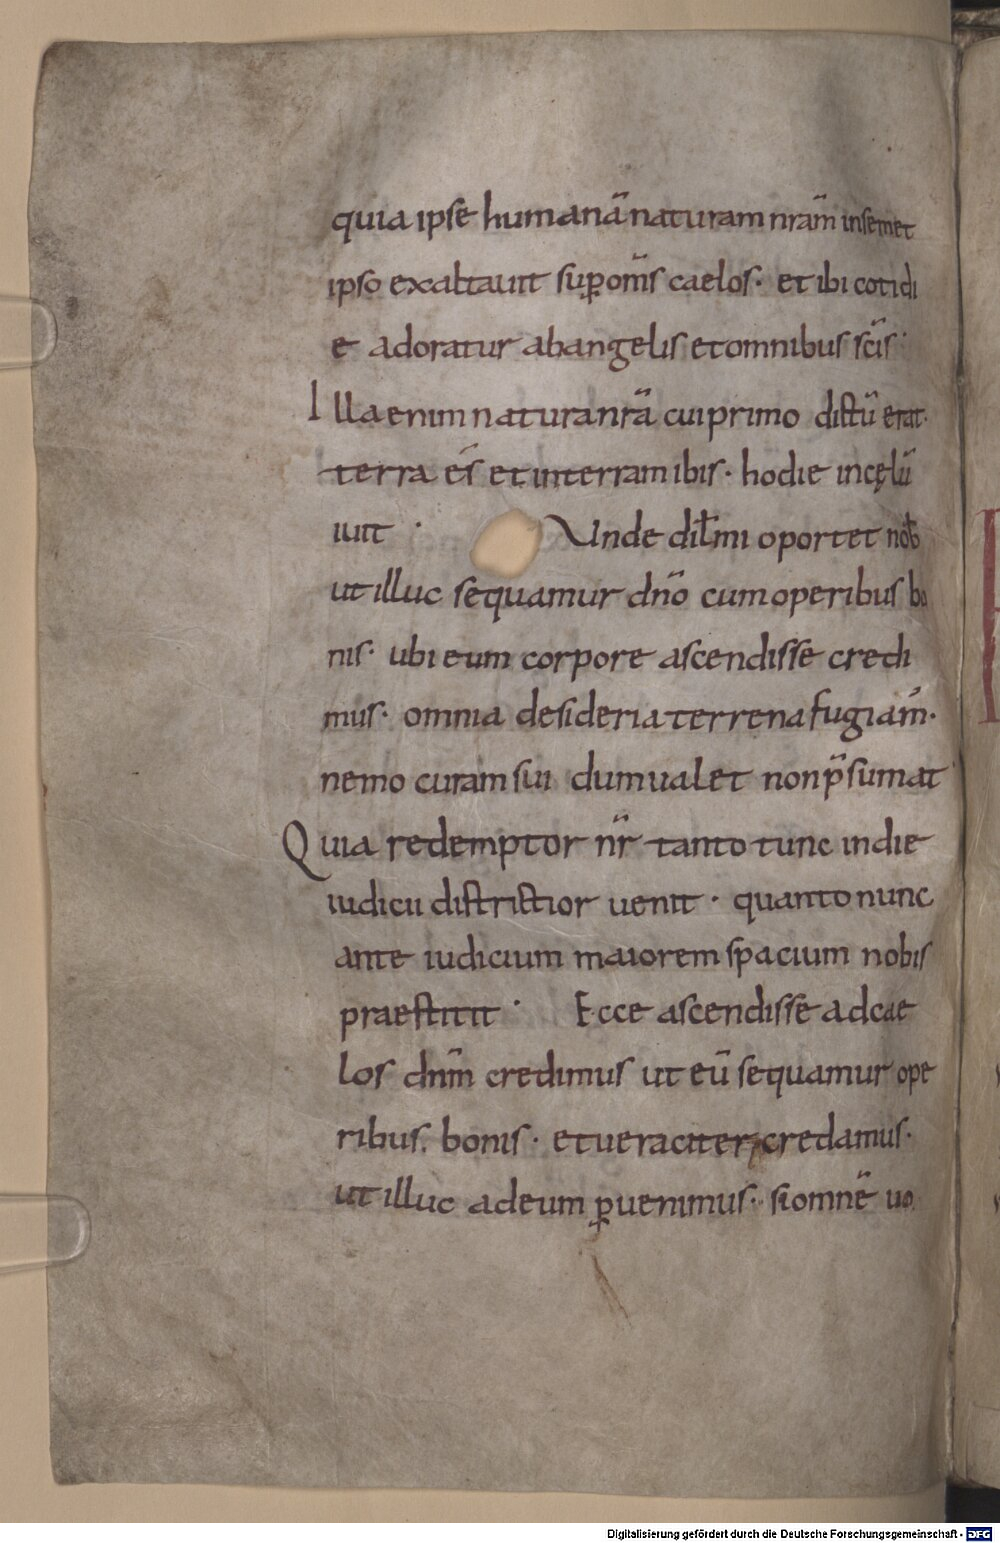 quia ipse humanā naturam nrām insemet
ipso exaltauit sup̄ om̄s caelos· et ibi cotidi
e adoratur abangelis et omnibus scīs·
Illa enim natura nrā cui primo dictū erat·
terra ēs et interram ibis· hodie incęlū
iuit · Unde dil̄mi oportet nob̄
ut illuc sequamur dnō cum operibus bo
nis· ubi eum corpore ascendisse credi
mus· omnia desideria terrena fugiam̄·
nemo curam sui dum ualet non p̄sumat
Quia redemptor nr̄ tanto tunc indie
iudicii districtior uenit· quanto nunc
ante iudicium maiorem spacium nobis
praestitit · Ecce ascendisse ad cae
los dnm̄ credimus ut eū sequamur ope
ribus. bonis· et ueraciter credamus·
ut illuc ad eum p̲uenimus· si omnē uo
Digitalisierung gefördert durch die Deutsche Forschungsgemeinschaft - DFG